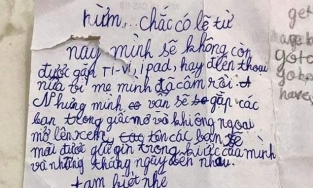 hừm... chắc có lẽ từ
nay mình sẽ không còn
được gặp TI-VI, ipad, hay điện thoại
nữa bì mẹ mình đã cấm rồi.
Nhưng mình vẫn sẽ gặp các
bạn trong giấc mơ và không ngoại
mở lên xem, tên các bạn sẽ
mãi được giữ gìn trong kí ức của mình
và những tháng ngày bên nhau.
tạm biệt nhé
get